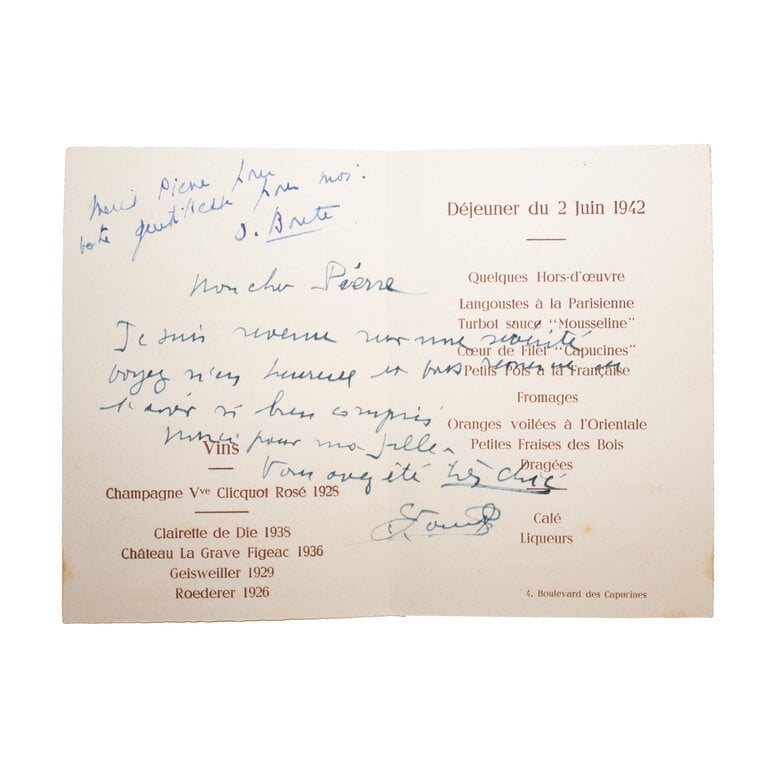 Merci Pierre pour
votre gentillesse pour moi.
Mon cher Pierre
Je suis revenue sur une
voyez m'en heureuse et vous
l'avoir si bien compris
Merci pour ma fille
Vous avez été très chic
Vins
Champagne Vve Clicquot Rosé 1928
Clairette de Die 1938
Château La Grave Figeac 1936
Geisweiller 1929
Roederer 1926
Déjeuner du 2 Juin 1942
Quelques Hors-d'œuvre
Langoustes à la Parisienne
Turbot sauce "Mousseline"
Cœur de Filet "Capucines"
Petits Pois à la Française
Fromages
Oranges voilées à l'Orientale
Petites Fraises des Bois
Dragées
Café
Liqueurs
4, Boulevard des Capucines